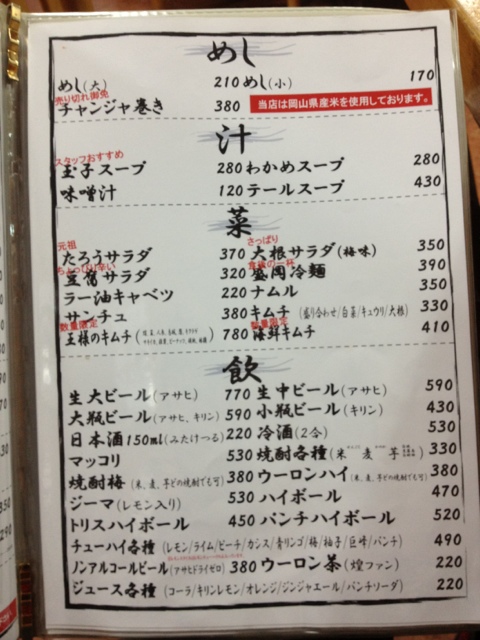 めし
めし(大) 210 めし(小) 170
売り切れ御免
チャンジャ巻き 380 当店は岡山県産米を使用しております。
汁
スタッフおすすめ
玉子スープ 280 わかめスープ 280
味噌汁 120 テールスープ 430
菜
元祖 さっぱり
たろうサラダ 370 大根サラダ(梅味) 350
ちょっぴり辛い 食後の一杯
豆腐サラダ 320 盛岡冷麺 390
ラー油キャベツ 220 ナムル 350
サンチュ 380 キムチ (盛り合わせ/白菜/キュウリ/大根) 330
数量限定 数量限定
王様のキムチ 780 海鮮キムチ 410
飲
生大ビール(アサヒ) 770 生中ビール(アサヒ) 590
大瓶ビール(アサヒ、キリン) 590 小瓶ビール(キリン) 430
日本酒150ml(みたけつる) 220 冷酒(2合) 530
マッコリ 530 焼酎各種(米 麦 芋) 330
焼酎梅(米、麦、芋どの焼酎でも可) 380 ウーロンハイ(米、麦、芋どの焼酎でも可) 380
ジーマ(レモン入り) 530 ハイボール 470
トリスハイボール 450 パンチハイボール 520
チューハイ各種 (レモン/ライム/ピーチ/カシス/青リンゴ/梅/柚子/巨峰/パンチ) 490
ノンアルコールビール(アサヒドライゼロ) 380 ウーロン茶(煌ファン) 220
ジュース各種 (コーラ/キリンレモン/オレンジ/ジンジャエール/パンチソーダ) 220